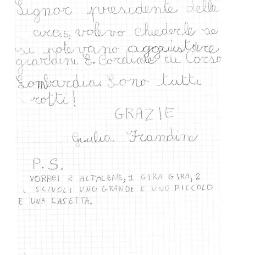 Signor presidente della
arci, volevo chiederle se
si potevano aggiustare
giardini E. Cordiale di Corso
Lombardia. Sono tutti
rotti!
GRAZIE
Giulia Frandin
P.S.
VORREI 2 ALTALENE, 1 GIRA GIRA, 2
SCIVOLI UNO GRANDE E UNO PICCOLO
E UNA CASETTA.